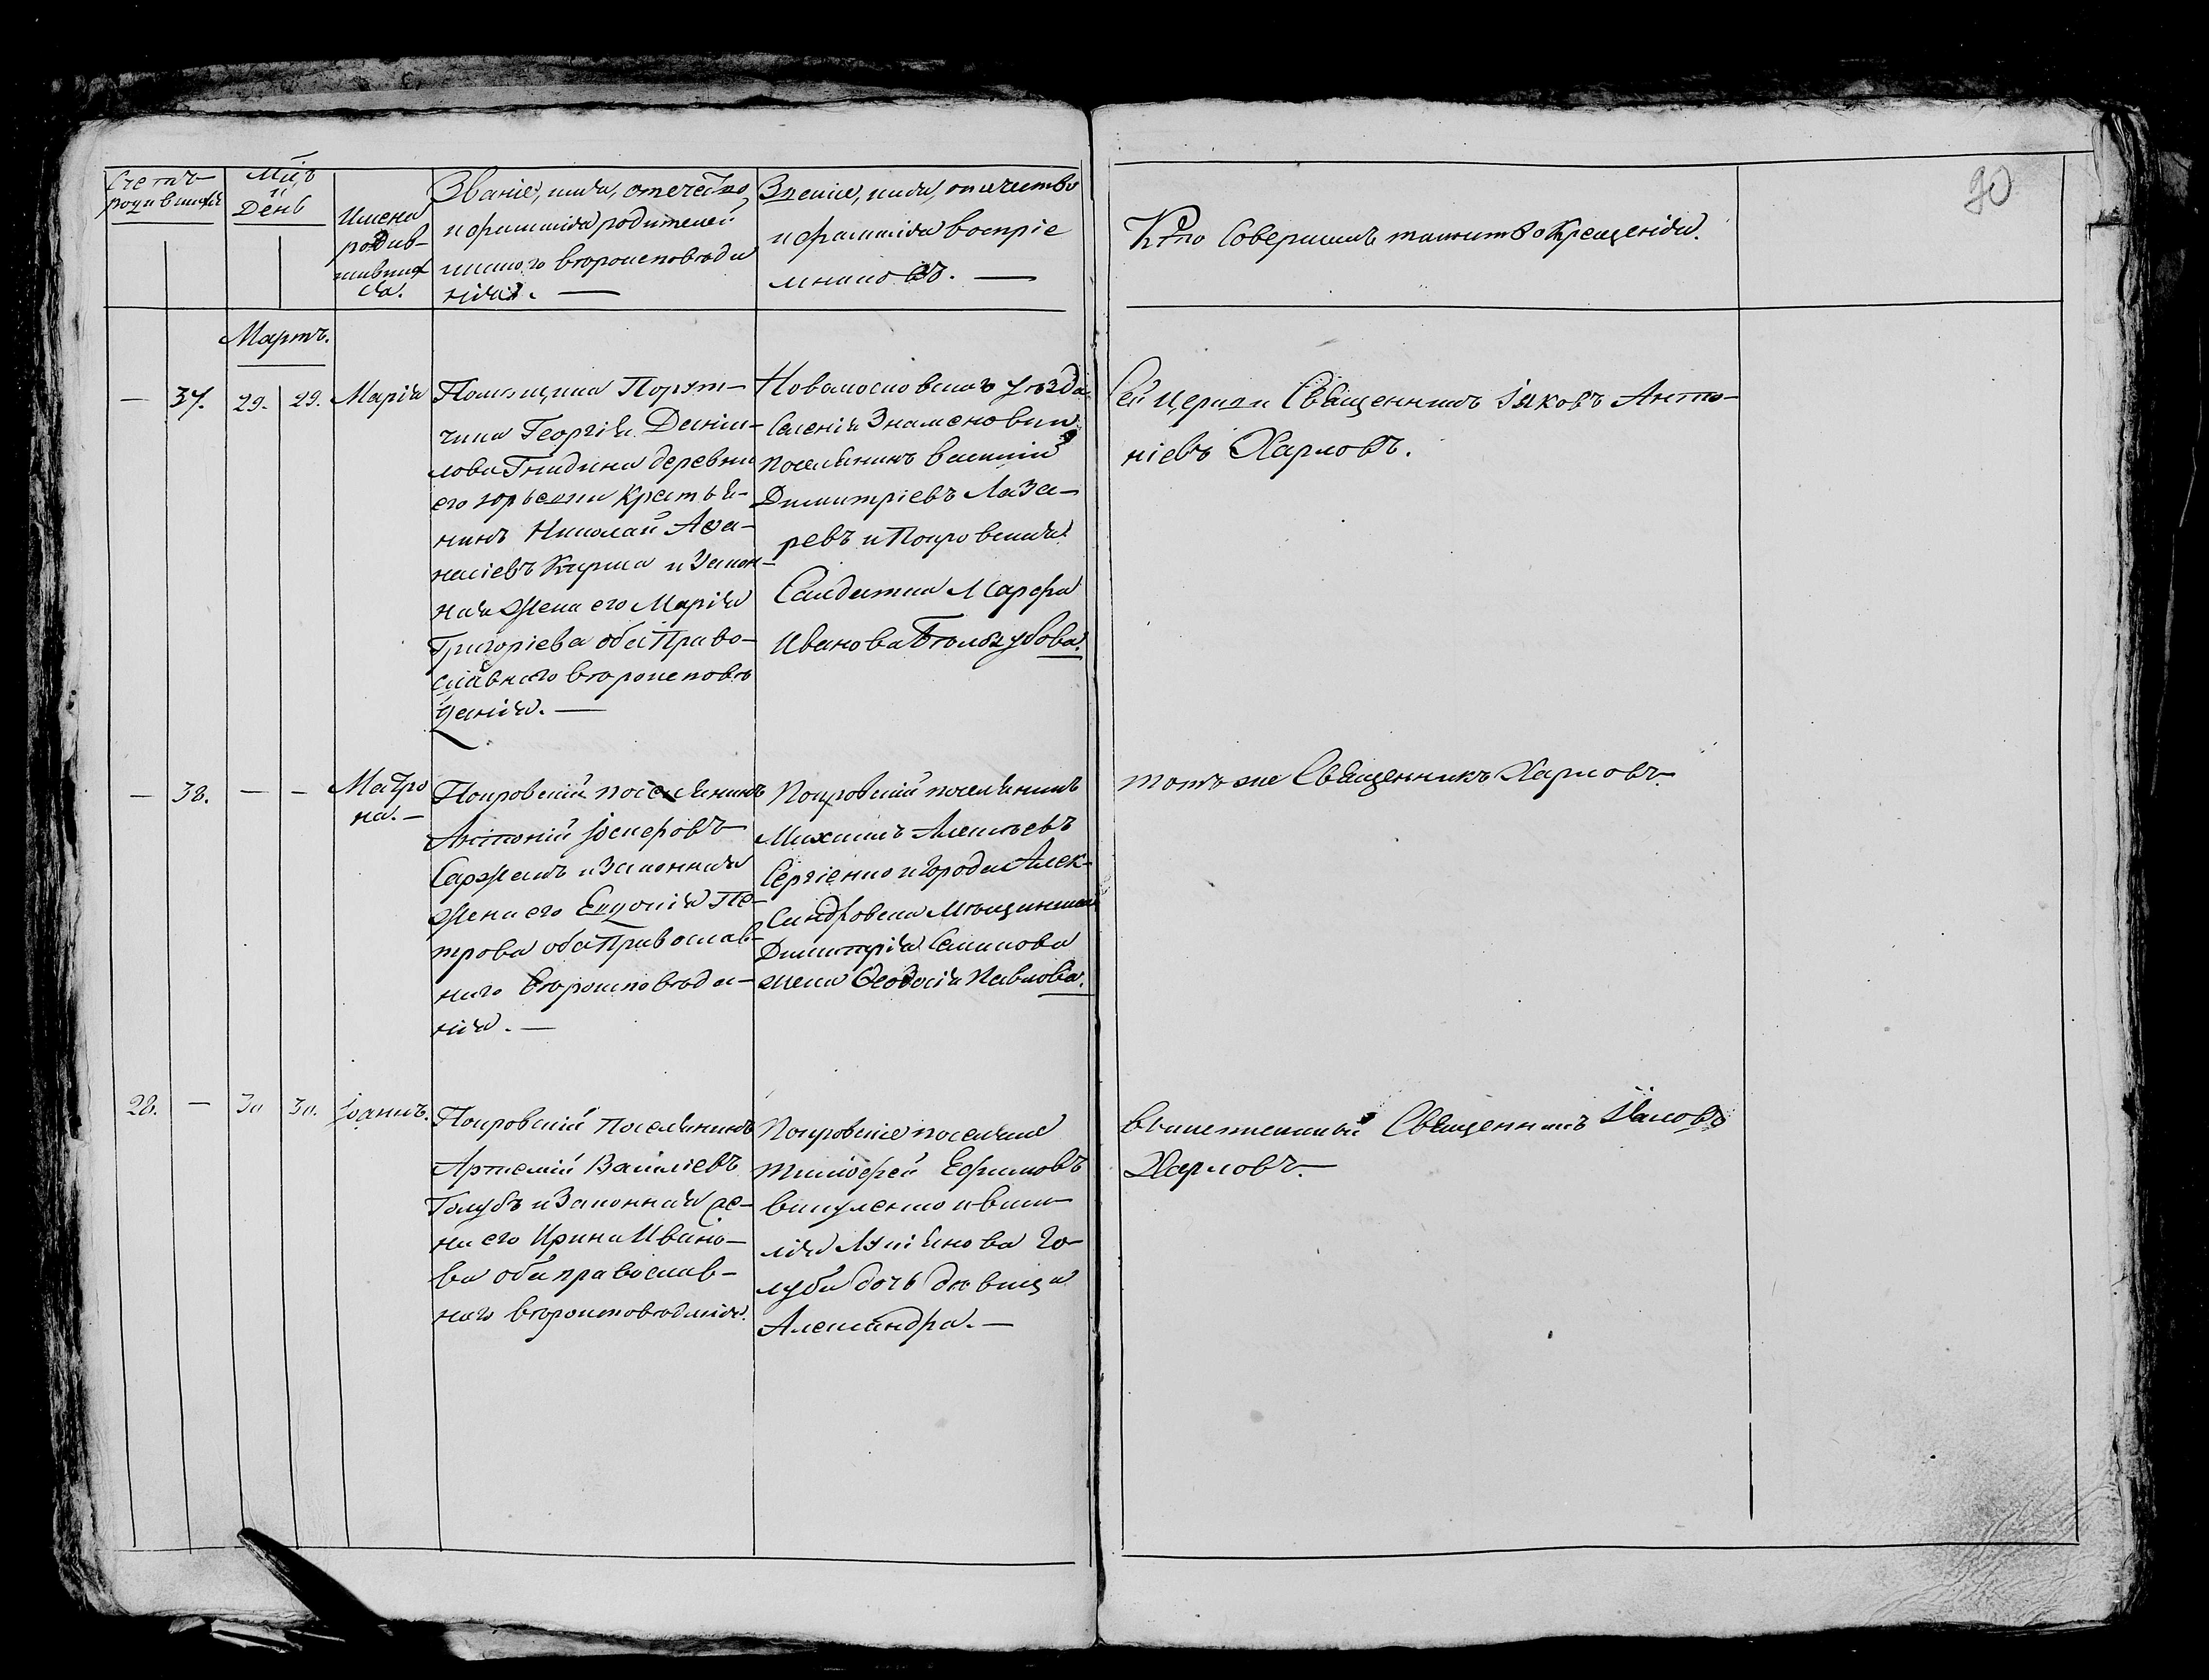 90
Счетъ
родившихся
Мцъ
и
День
Имена
родив-
шихся
ся.
Званіе, имя, отечество,
и фамилія родителей
какого вѣроисповѣда
нія. —
Званіе, имя, отечество
и фамилія воспріе
мниковъ. —
Кто совершилъ таинство крещенія.
Мартъ.
— 37. 29. 29. Марія
Помѣщика Порут-
чика Георгія Даніи-
лова Гнидина деревни
его крестья-
нинъ Николай Аѳа-
насіевъ и закон-
ная жена его Марія
Григоріева оба Право-
славнаго вѣроисповѣ
данія. —
Новомосковскаго уѣзда
селенія Знаменовки
поселянинъ Василій
Димитріевъ Лаза-
ревъ и Покровская
Салдатка Марфа
Иванова Бѣлозубова.
Сей церкви Священникъ Іаковъ Анто-
ніевъ Харловъ.
— 38. — —
Матро
на. —
Покровскій поселянинъ
Антоній Іосифовъ
Саржанъ и законная
жена его Евдокія Пе-
трова оба Православ-
наго вѣроисповѣда-
нія. —
Покровскій поселянинъ
Михаилъ Алексѣевъ
Сергіенко и города Алек-
сандровска мѣщанина
Димитрія Семикова
жена Ѳеодосія Павлова.
тотъ же Священникъ Харловъ.
28. — 30 30. Іоаннъ.
Покровскій Поселянинъ
Артемій Василіевъ
Голубъ и законная же-
на его Ирина Ивано-
ва оба православ-
наго вѣроисповѣданія.
Покровскіе поселяне
Тимофей Ефимовъ
Викуленко и Васи-
лія Лукіянова Го-
луба дочь дѣвица
Александра. —
вышеписанный Священникъ Іаковъ
Харловъ. —